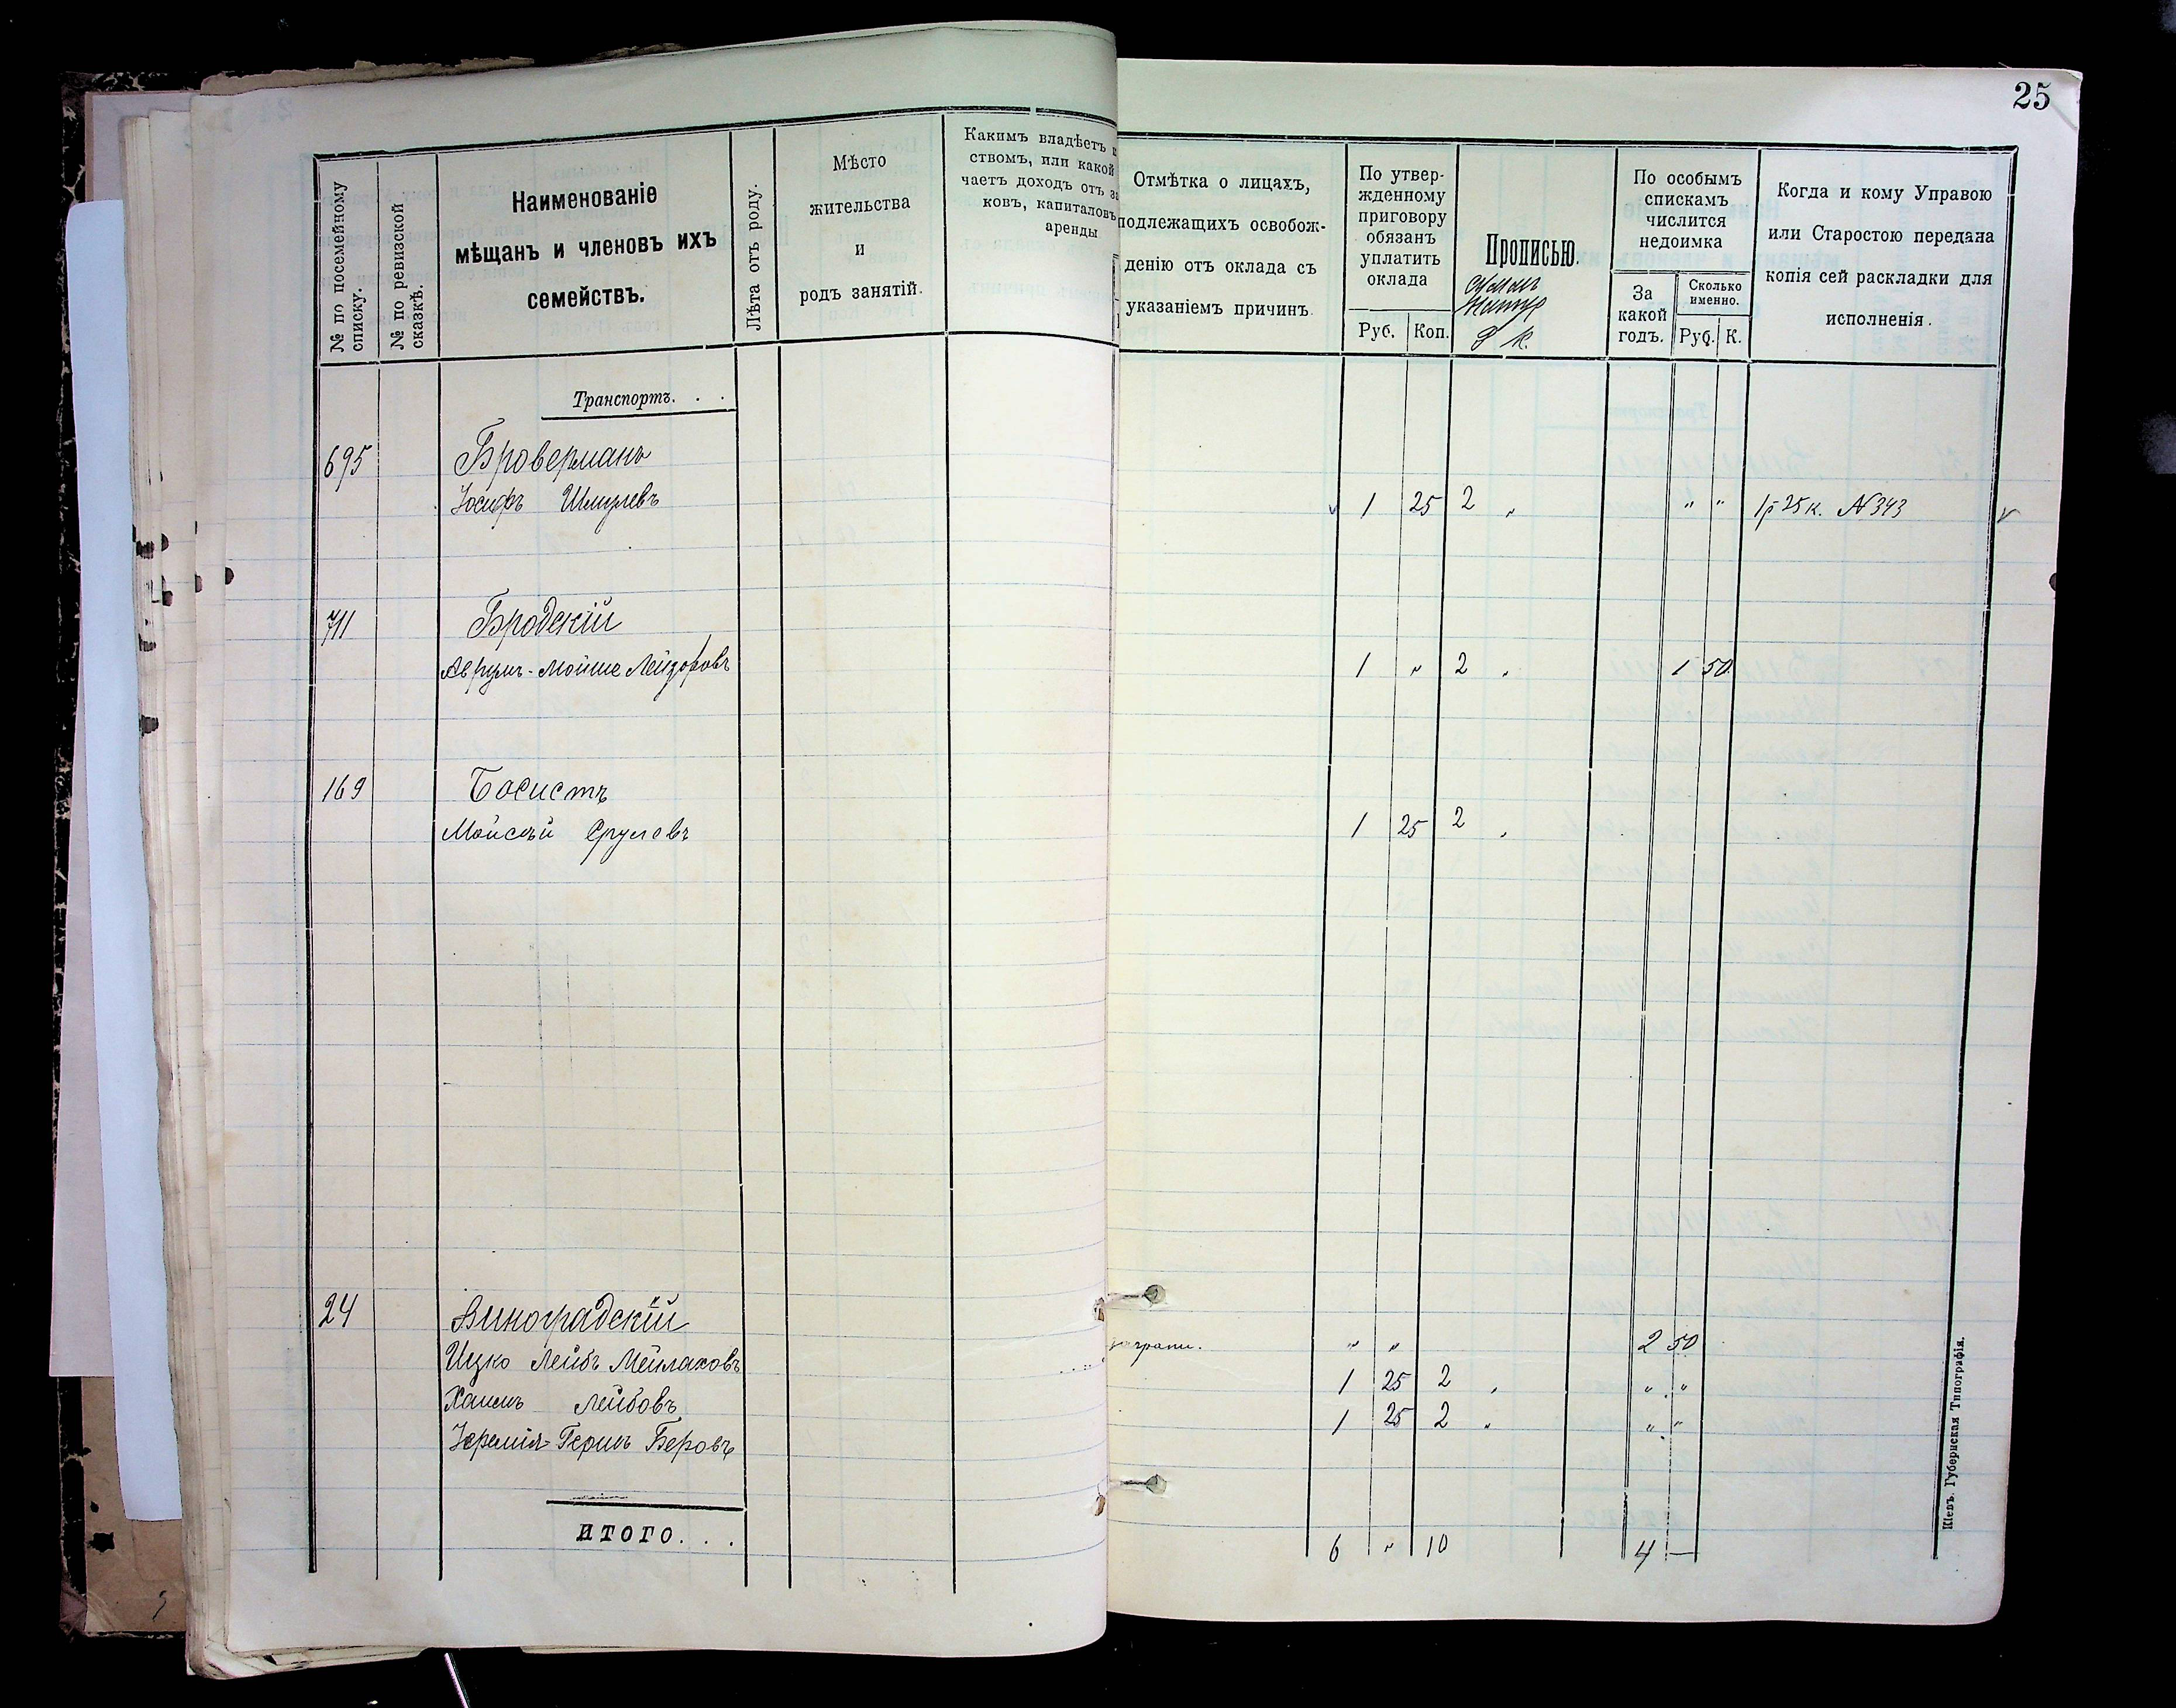 25
№ по посемейному
списку.
№ по ревизской
сказкѣ.
Наименованіе
мѣщанъ и членовъ ихъ
семействъ.
Лѣта отъ роду.
Мѣсто
жительства
и
родъ занятій.
Какимъ владѣетъ
ствомъ, или какой
чаетъ доходъ отъ за
ковъ, капиталовъ
аренды
Отмѣтка о лицахъ,
подлежащихъ освобож-
денію отъ оклада съ
указаніемъ причинъ.
По утвер-
жденному
приговору
обязанъ
уплатить
оклада
Руб. Коп.
Прописью.
к.
По особымъ
спискамъ
числится
недоимка
За
какой
годъ.
Сколько
именно.
Руб. К.
Когда и кому Управою
или Старостою передана
копія сей раскладки для
исполненія.
Транспортъ. . .
695 Броверманъ
Іосифъ Шмулевъ 1 25 2 „ „ „ 1р 25 к. № 343
711 Бродскій
Аврумъ-Мойше Лейзоровъ 1 „ 2 „ 1 50
169 Босистъ
Мойсей Срулевъ 1 25 2 „
24 Виноградскій
Ицко Лейбъ Мейлаховъ „ „ 2 50
Хаимъ Лейбовъ 1 25 2 „ „ „
Іеремія-Гершъ Беровъ 1 25 2 „ „ „
ИТОГО. . . 6 „ 10 4 —
Кіевъ. Губернская Типографія.